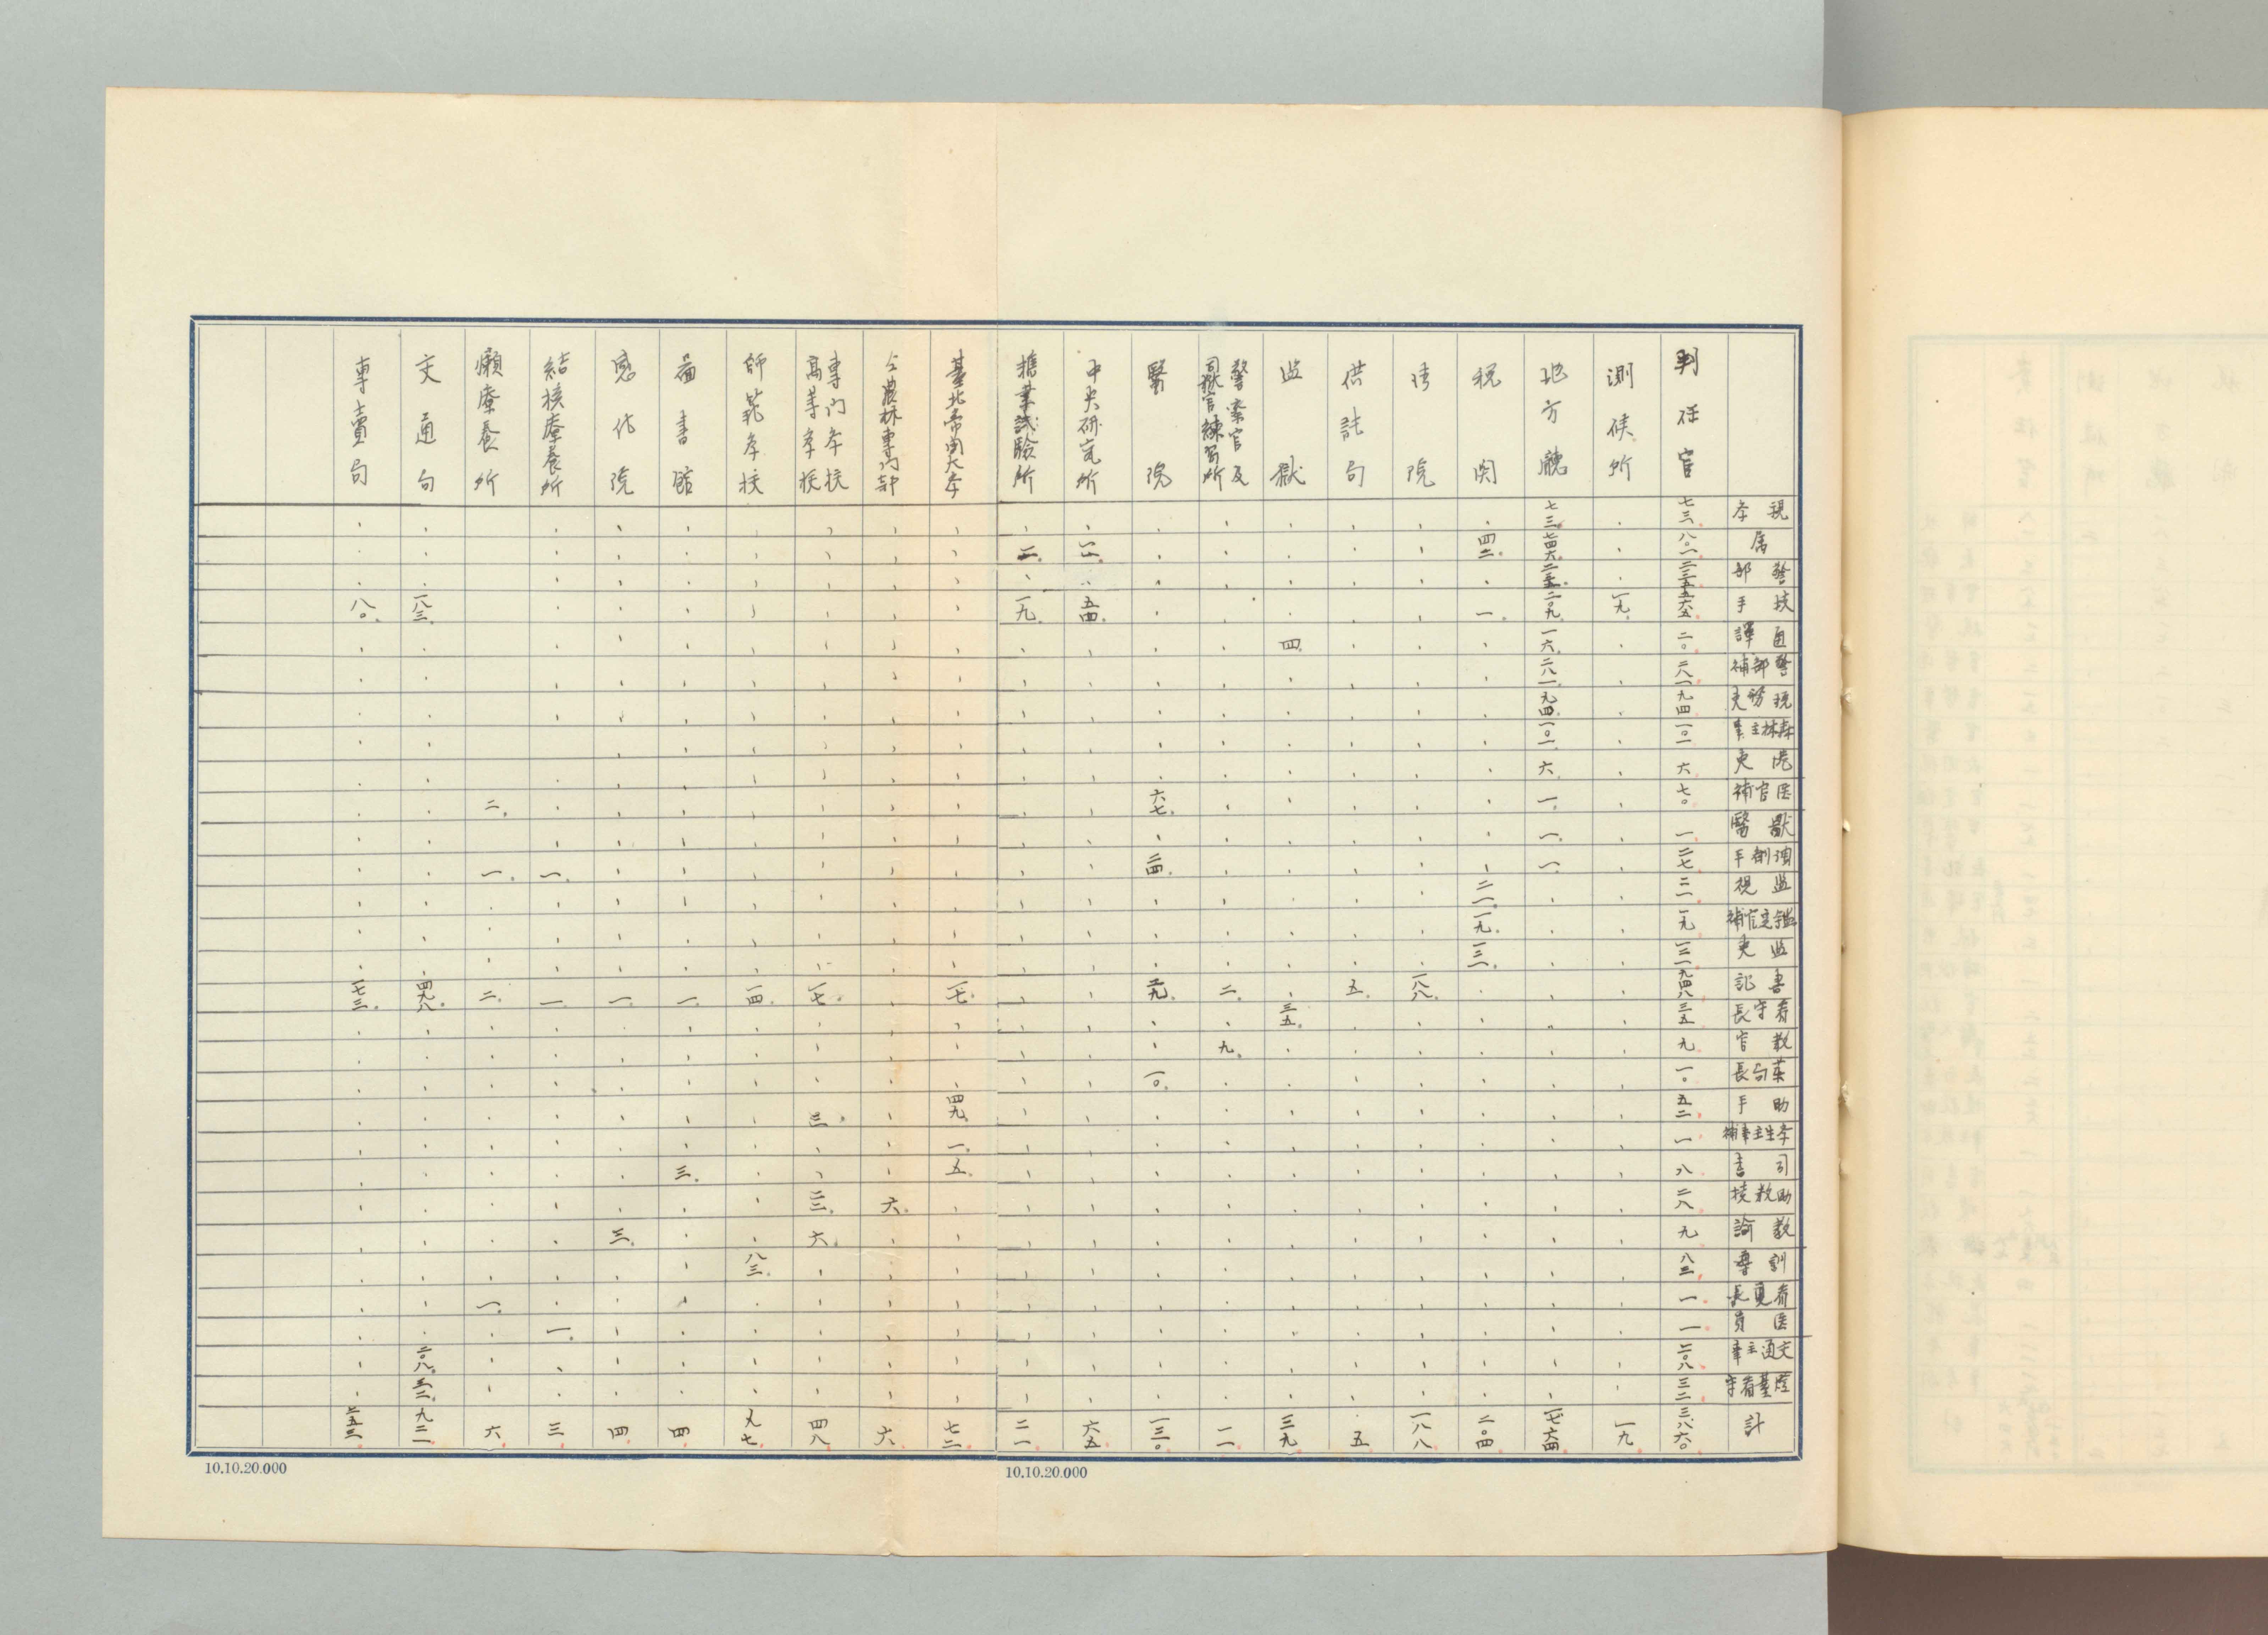 視学
属
警部
技手
通譯
警部補
税務吏
森林主事
港吏
医官補
獣醫
調剤手
監視
鑑定官補
監吏
書記
看守長
教官
薬局長
助手
学生主事補
司書
助教授
教諭
訓導
看護長
医員
交通主事
燈臺看守
計
判任官
七三
八〇一
二三五
五六五
二〇
二八一
九四
一〇一
六
七〇
一
二七
二一
一九
一二一
九四八
三五
九
一〇
五二
一
八
二八
九
八三
一
一
二〇八
三二
三八六〇
測候所
一九
一九
地方廳
七三
七四六
二三五
二〇九
一六
二八一
九四
一〇一
六
一
一
一
一七六四
税関
四二
一
二一
一九
一二一
二〇四
法院
一八八
一八八
供託局
五
五
監獄
四
三五
三九
警察官及
司獄官練習所
二
九
一一
醫院
六七
二四
二九
一〇
一三〇
中央研究所
一一
五四
六五
糖業試驗所
二
一九
二一
臺北帝國大学
一七
四九
一
五
七二
仝農林專門部
六
六
専门学校
高等学校
一七
三
二二
六
四八
師範学校
一四
八三
九七
圖書館
一
三
四
感化院
一
三
四
結核療養所
一
一
一
三
癩療養所
二
一
二
一
六
交通局
一八三
四九八
二〇八
三二
九二一
専賣局
八〇
一七三
二五三
10.10.20.000
10.10.20.000